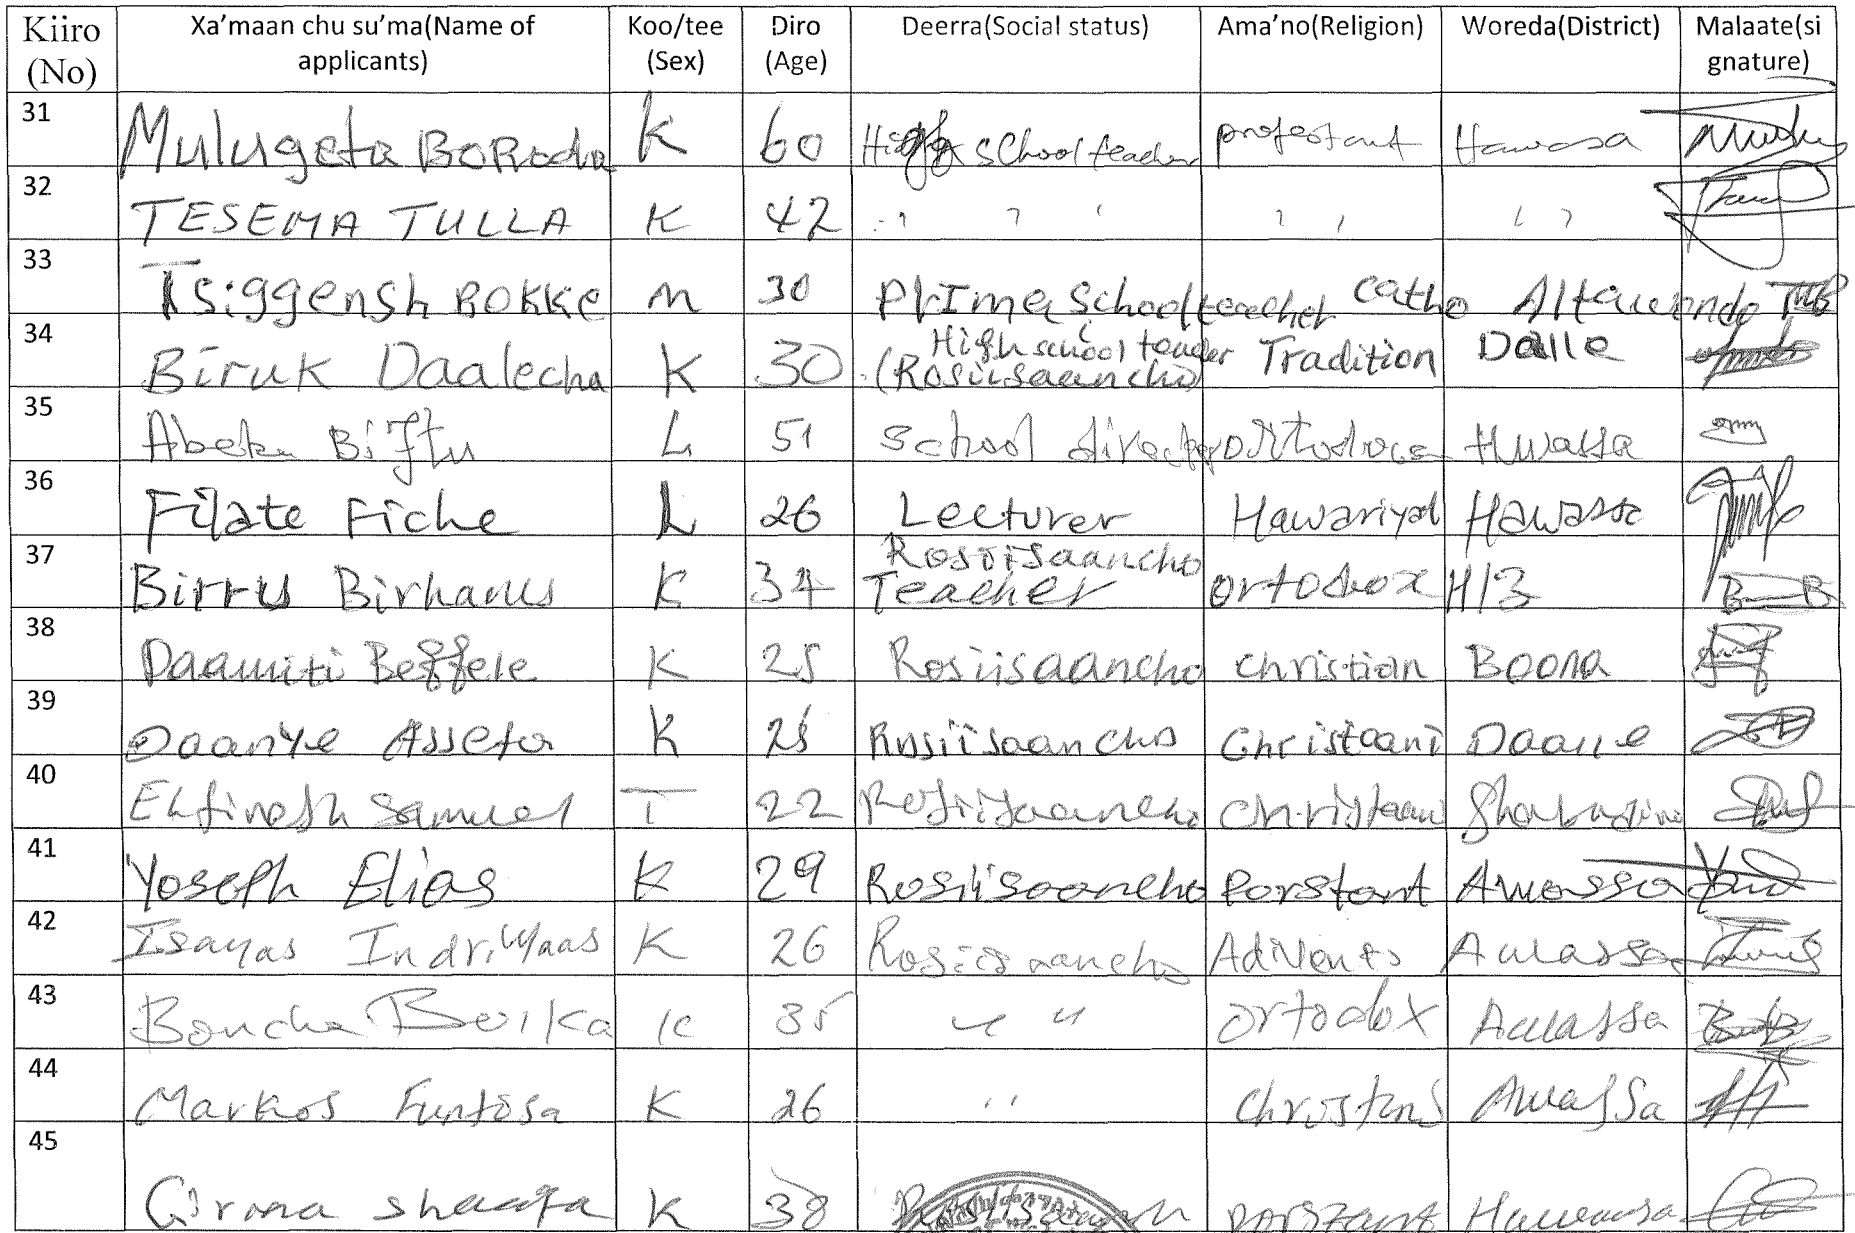 Kiiro (No) Xa'maan chu su'ma(Name of applicants) Koo/tee (Sex) Diro (Age) Deerra(Social status) Ama'no(Religion) Woreda(District) Malaate(si gnature)
31 Mulugeta BORoda K 60 High school teacher profestant Hawasa
32 TESEMA TULLA K 42 " " " " " "
33 Tsiggensh BOKKE M 30 PrIme School teacher Catho Altawondo TB
34 Biruk Daalecha K 30 High school teacher (Rosiisaancho) Tradition Dalle
35 Abeka Biftu L 51 School director Hwassa
36 Filate Fiche L 26 Lecturer Hawariyat Hawassa
37 Birru Birhanu K 34 Rosiisaancho Teacher Ortodox H/3 B B
38 Daamiti Beffele K 25 Rosiisaancho Christian Boona
39 Daanye Assefa K 25 Rosiisaancho Christaani Daalle
40 Elfinesh Samuel T 22 Rosiisaancho Christaani
41 Yoseph Elias K 29 Rosiisaancho Porstant Awassa
42 Isayas Indriyaas K 26 Rosiisaancho Adivents Awassa
43 K 35 " " Ortodox Awassa
44 Markos Funtosa K 26 " Awassa
45 Girma K 38 porstant